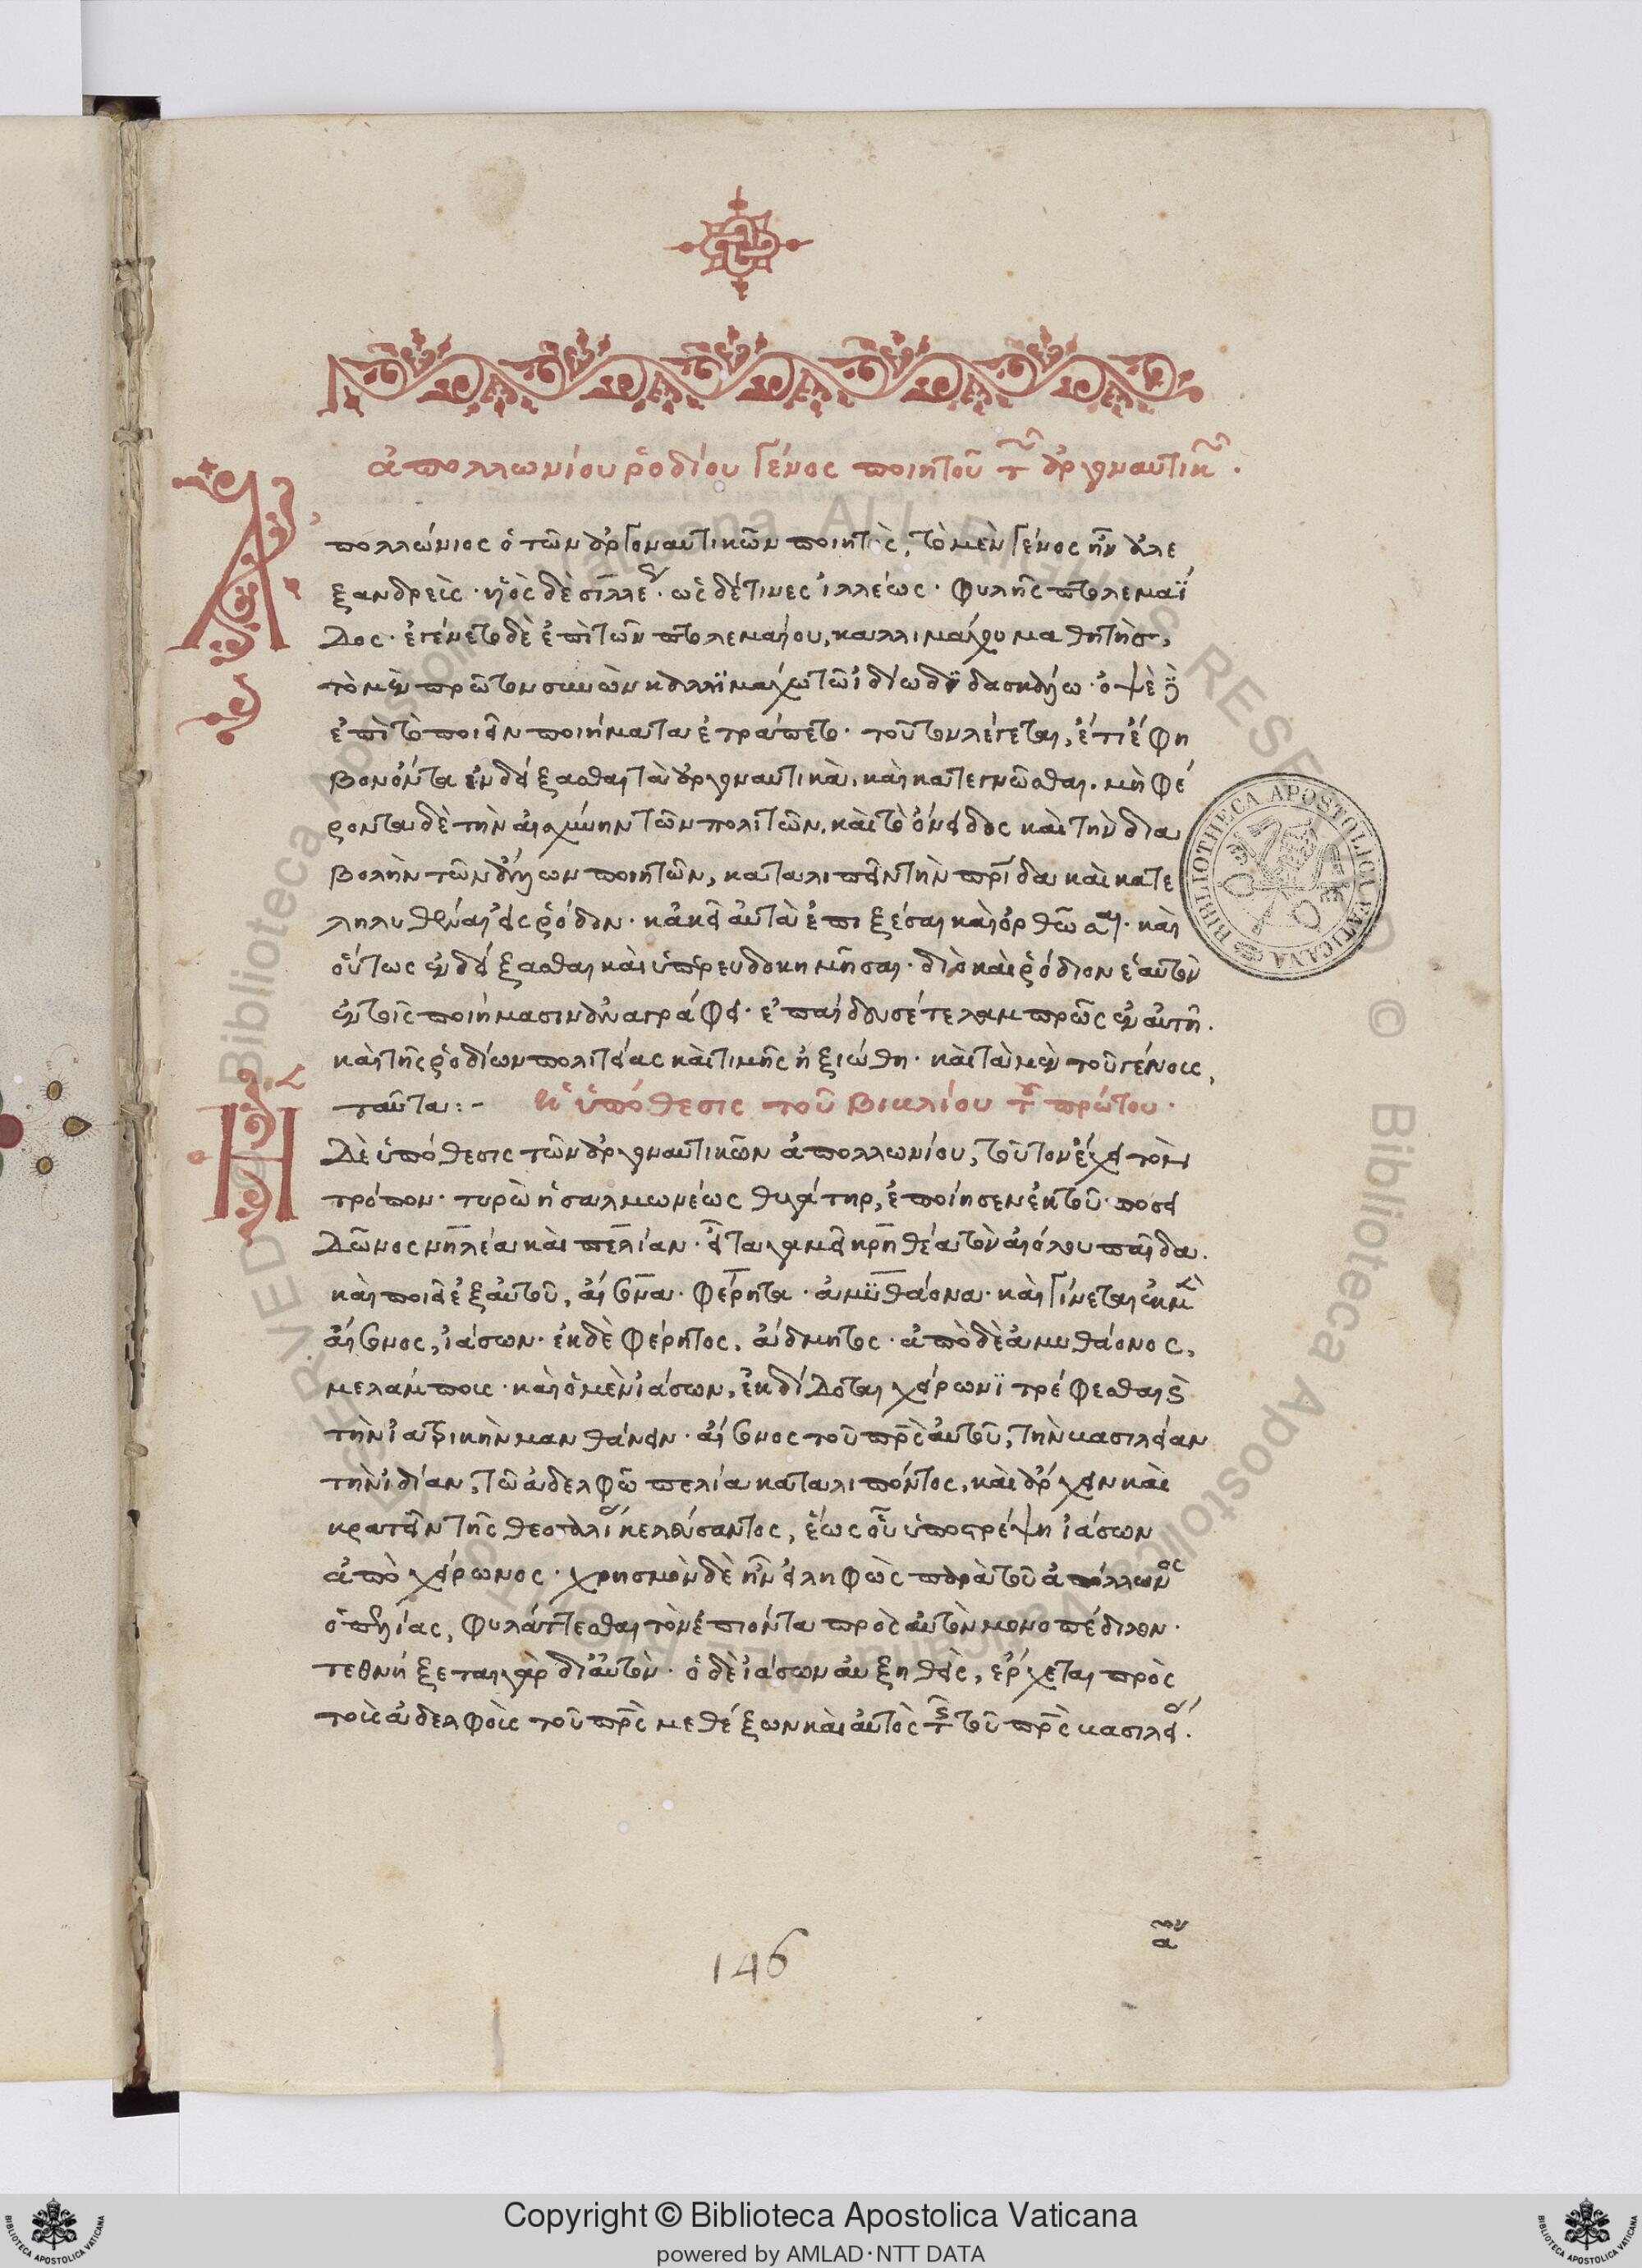 ἀπολλωνίου ῥοδίου γένος ποιητοῦ τ῀ ἀργοναυτικ῀.
Ἀπολλώνιος ὁ τῶν ἀργοναυτικῶν ποιητὴς, τὸ μὲν γένος ἦν ἀλε
ξανδρεὺς · υἱὸς δὲ σιλλε · ὡς δέ τινες ἰλλέως · φυλῆς πτολεμαΐ
δος · ἐγένετο δὲ ἐπὶ τῶν πτολεμαίου, καλλιμάχου μαθητὴς,
τὸ μὲν πρῶτον συνὼν καλλϊμάχω τῶ ἰδίω δϊδασκάλω · ὀψὲ
ἐπὶ τὸ ποιεῖν ποιήματα ἐτράπετο · τοῦτον λέγεται, ἔτι ἔφη
βον ὄντα ἐνδείξασθαι τὰ ἀργοναυτικὰ, καὶ κατεγνῶσθαι. μὴ φέ
ροντα δὲ τὴν αἰσχύνην τῶν πολιτῶν, καὶ τὸ ὄνειδος καὶ τὴν δια
βολὴν τῶν ἄλλων ποιητῶν, καταλιπεῖν τὴν πρίδα καὶ κατε
ληλυθέναι εἰς ῥόδον · κἀκεῖ αὐτὰ ἐπιξέσαι καὶ ὀρθῶσαι · καὶ
οὕτως ἐνδείξασθαι καὶ ὑπερευδοκιμῆσαι · διὸ καὶ ῥόδιον ἑαυτὸν
ἐν τοῖς ποιήμασιν ἀναγράφει · ἐπαίδευσέ τε λαμπρῶς ἐν αὐτῆ.
καὶ τῆς ῥοδίων πολιτείας καὶ τιμῆς ἠξιώθη · καὶ τὰ μὲν τοῦ γένους,
ταῦτα:- Ἡ ὑπόθεσις τοῦ βιβλίου τ πρώτου·
Ἡ δὲ ὑπόθεσις τῶν ἀργοναυτικῶν ἀπολλωνίου, τοῦτον ἔχει τὸν
τρόπον · τυρὼ ἡ σαλμωνέως θυγάτηρ, ἐποίησεν ἐκ τοῦ ποσει
δῶνος νηλέα καὶ πελίαν · εἶτα γαμεῖ κρηθέα τὸν αἰόλου παῖδα.
καὶ ποιεῖ ἐξ αὐτοῦ, αἴσονα · φέρητα · ἀμϋθάονα · καὶ γίνεται ἐκ μὲν
αἴσονος, ἰάσων · ἐκ δὲ φέρητος, ἄδμητος · ἀπὸ δὲ ἀμυθάονος,
μελάμπους · καὶ ὁ μὲν ἰάσων, ἐκδίδοται χείρωνϊ τρέφεσθαι
τὴν ἰατρικὴν μανθάνειν · αἴσονος τοῦ πρς αὐτοῦ, τὴν βασιλείαν
τὴν ἰδίαν, τῶ ἀδελφῶ πελία καταλιπόντος, καὶ ἄρχειν καὶ
κρατεῖν τῆς θεσσαλί κελεύσαντος, ἕως οὗ ὑποστρέψη ἰάσων
ἀπὸ χείρωνος · χρησμὸν δὲ ἦν εἰληφὼς παρὰ τοῦ ἀπόλλωνος
ὁ πελίας, φυλάττεσθαι τὸν ἐπιόντα πρὸς αὐτὸν μονοπέδιλον ·
τεθνήξεται γὰρ δι αὐτὸν · ὁ δὲ ἰάσων αὐξηθεὶς, ἔρχεται πρὸς
τοὺς ἀδελφοὺς τοῦ πρς μεθέξων καὶ αὐτὸς τ τοῦ πρς βασιλεί.
146
BIBLIOTHECA APOSTOLICA VATICANA
© Biblioteca Apostolica Vaticana ALL RIGHTS RESERVED
Copyright © Biblioteca Apostolica Vaticana
powered by AMLAD·NTT DATA
BIBLIOTECA APOSTOLICA VATICANA
BIBLIOTECA APOSTOLICA VATICANA